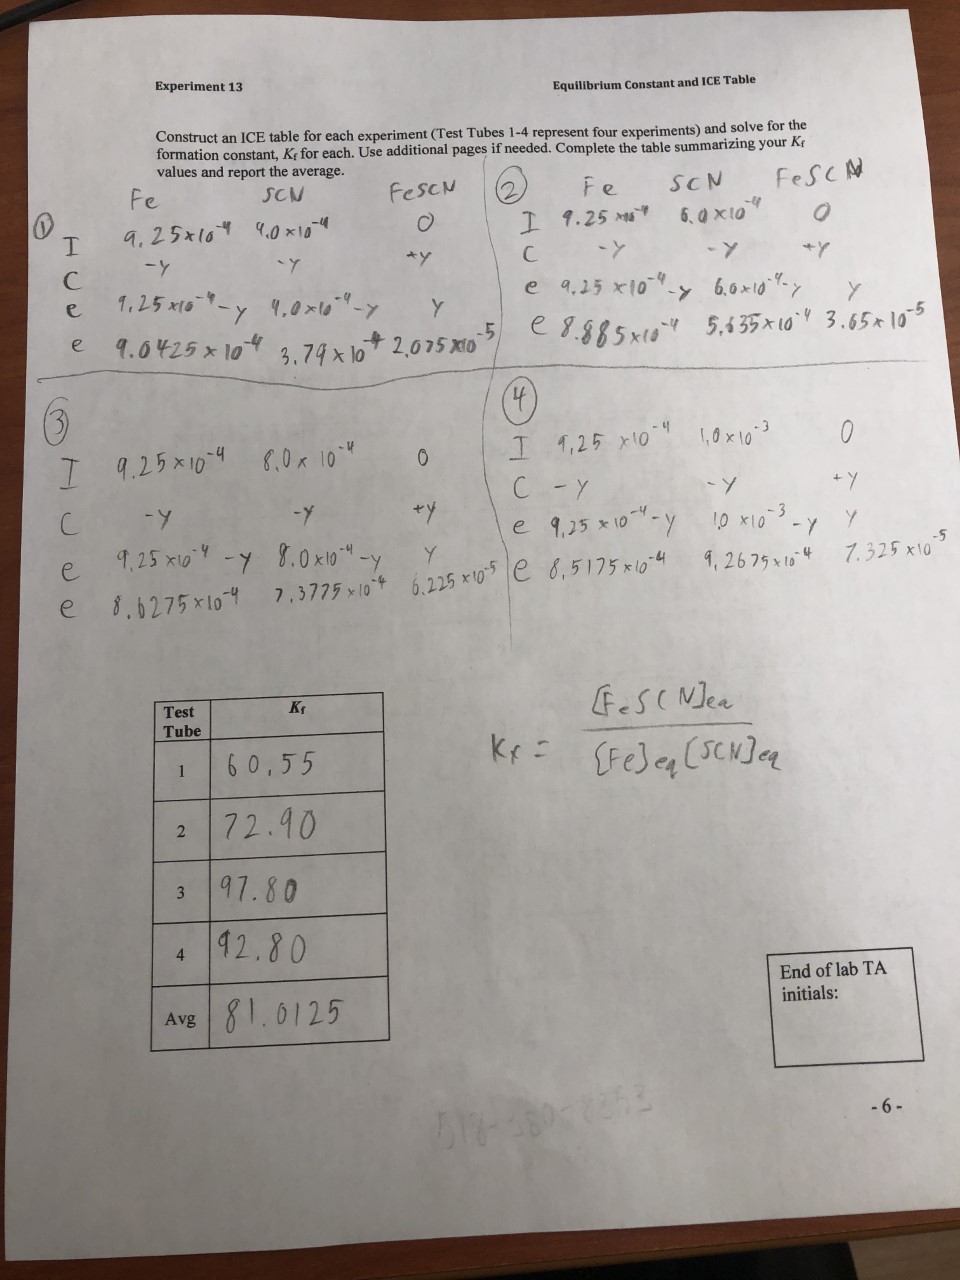 Experiment 13 Equilibrium Constant and ICE Table
Construct an ICE table for each experiment (Test Tubes 1-4 represent four experiments) and solve for the
formation constant, Kf for each. Use additional pages if needed. Complete the table summarizing your Kf
values and report the average.
① Fe SCN FeSCN
I 9.25x10⁻⁴ 4.0x10⁻⁴ 0
C -y -y +y
e 9.25x10⁻⁴-y 4.0x10⁻⁴-y y
e 9.0425x10⁻⁴ 3.79x10⁻⁴ 2.075x10⁻⁵
② Fe SCN FeSCN
I 9.25x10⁻⁴ 6.0x10⁻⁴ 0
C -y -y +y
e 9.25x10⁻⁴-y 6.0x10⁻⁴-y y
e 8.885x10⁻⁴ 5.635x10⁻⁴ 3.65x10⁻⁵
③
I 9.25x10⁻⁴ 8.0x10⁻⁴ 0
C -y -y +y
e 9.25x10⁻⁴-y 8.0x10⁻⁴-y y
e 8.6275x10⁻⁴ 7.3775x10⁻⁴ 6.225x10⁻⁵
④
I 9.25x10⁻⁴ 1.0x10⁻³ 0
C -y -y +y
e 9.25x10⁻⁴-y 1.0x10⁻³-y y
e 8.5175x10⁻⁴ 9.2675x10⁻⁴ 7.325x10⁻⁵
Test Tube Kf
1 60.55
2 72.90
3 97.80
4 92.80
Avg 81.0125
Kf = [FeSCN]eq / [Fe]eq[SCN]eq
End of lab TA
initials:
-6-